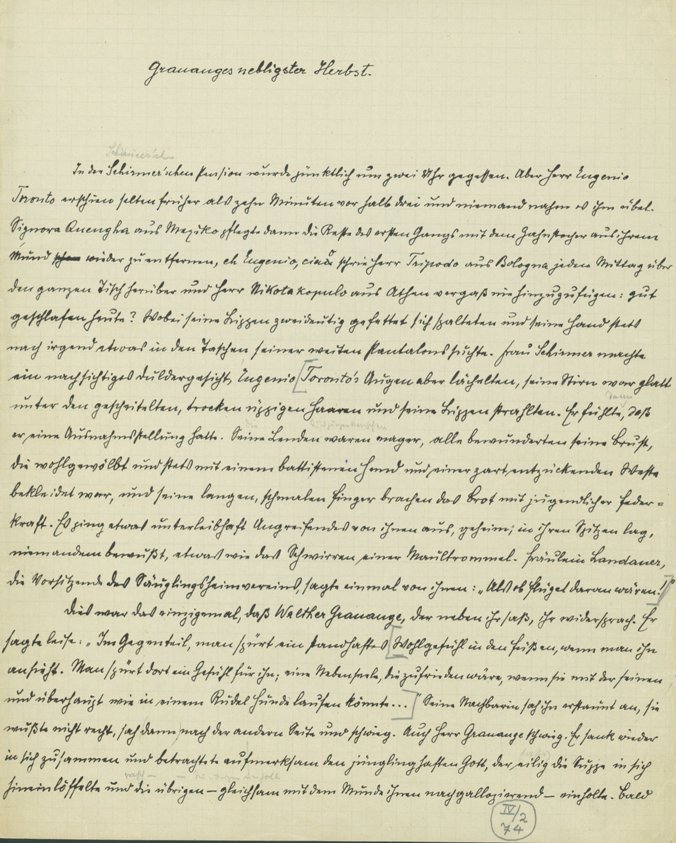 Grauanges nebligster Herbst.
Schirmer'sch
In der Schirmer'schen Pension wurde pünktlich um zwei Uhr gegessen. Aber Herr Eugenio
Toronto erschien selten früher als zehn Minuten vor halb drei und niemand nahm es ihm übel.
Signora Quengha aus Mexiko pflegte dann die Reste des ersten Gangs mit dem Zahnstocher aus ihrem
Mund wieder zu entfernen, eh Eugenio, ciau schrie Herr Tripodo aus Bologna jeden Mittag über
den ganzen Tisch herüber und Herr Nikolakopulo aus Athen vergaß nie hinzuzufügen: gut
geschlafen heute? Wobei seine Lippen zweideutig gefettet sich spalteten und seine Hand stets
nach irgend etwas in den Taschen seiner weiten Pantalons suchte. Frau Schirmer machte
ein nachsichtiges Duldergesicht, Eugenio [Toronto's Augen aber lächelten, seine Stirn war glatt
unter den gescheitelten, trocken üppigen Haaren und seine Lippen strahlten. Er fühlte, daß
er eine Ausnahmsstellung hatte. Seine Lenden waren mager, alle bewunderten seine Brust,
die wohlgewölbt und stets mit einem battistenen Hemd und einer zart entzückenden Weste
bekleidet war, und seine langen, schmalen Finger brachen das Brot mit jugendlicher Feder-
kraft. Es ging etwas unterleibhaft Angreifendes von ihnen aus, geheim; in ihren Spitzen lag,
niemandem bewußt, etwas wie das Schwirren einer Maultrommel. Fräulein Landauer,
die Vorsitzende des Säuglingsheimvereins, sagte einmal von ihnen: „Als ob Flügel daran wären!"]
Dies war das einzigemal, daß Walther Grauange, der neben ihr saß, ihr widersprach. Er
sagte leise: „Im Gegenteil, man spürt ein [Wohlgefühl in den Füßen, wenn man ihn
ansieht. Man spürt dort ein Gefühl für ihn; eine Nebenseele, die zufrieden wäre, wenn sie mit der seinen
und überhaupt wie in einem Rudel Hunde laufen könnte...] Seine Nachbarin sah ihn erstaunt an, sie
wußte nicht recht, sah dann nach der andern Seite und schwieg. Auch Herr Grauange schwieg. Er sank wieder
in sich zusammen und betrachtete aufmerksam den jünglinghaften Gott, der eilig die Suppe in sich
hineinlöffelte und die übrigen – gleichsam mit dem Munde ihnen nachgallopierend – einholte. Bald
IV/2
74